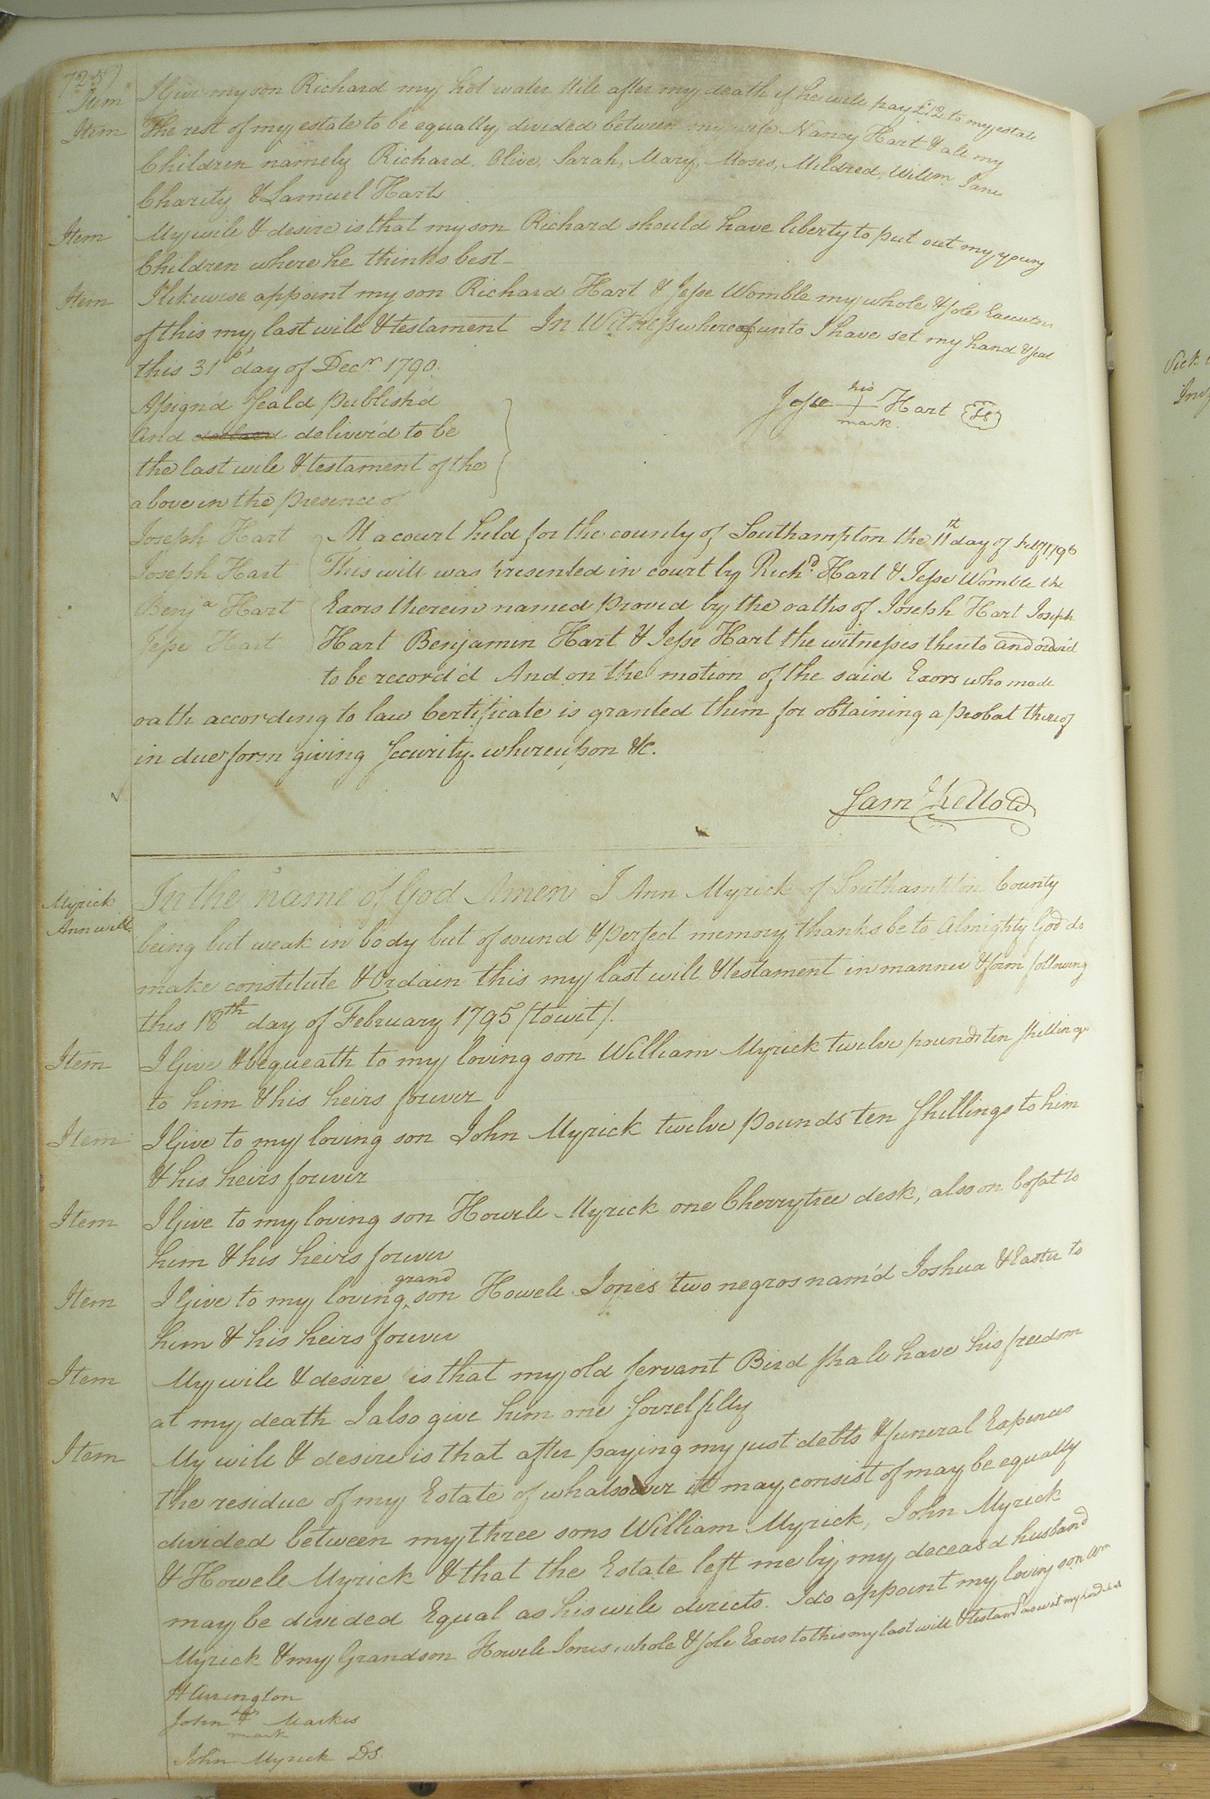 Item I Give my son Richard my hot water Still after my death if he will pay £12 to my estate
Item The rest of my estate to be equally divided between my wife Nancy Hart & all my
Children namely Richard, Olive, Sarah, Mary, Moses, Mildred, Willm. Jane
Charity & Samuel Hart
Item My will & desire is that my son Richard should have liberty to put out my young
Children where he thinks best
Item I likewise appoint my son Richard Hart & Jesse Womble my whole & sole Executors
of this my last will & testament In Witness whereof unto I have set my hand & seal
this 31st day of Decr 1790.
Assignd Seald Publishd
And deliver'd to be
the last will & testament of the
above in the presence of
his
Jesse Hart
mark
Joseph Hart
Joseph Hart
Benja Hart
Jesse Hart
At a court held for the county of Southampton the 11th day of
This will was presented in court by Richd. Hart & Jesse Womble the
Exors therein named proved by the oaths of Joseph Hart Joseph
Hart Benjamin Hart & Jesse Hart the witnesses thereto and ord'd
to be record'd And on the motion of the said Exors who made
oath according to law Certificate is granted them for obtaining a probat thereof
in due form giving Security. whereupon &c.
Saml Kello
Myrick
Ann will
In the name of God Amen I Ann Myrick of Southampton County
being but weak in body but of sound & perfect memory thanks be to Almighty God do
make constitute & Ordain this my last will & testament in manner & form following
this 18th day of February 1795 (towit).
Item I Give & bequeath to my loving son William Myrick twelve pounds ten Shillings
to him & his heirs forever
Item I Give to my loving son John Myrick twelve Pounds ten Shillings to him
& his heirs forever
Item I Give to my loving son Howell Myrick one Cherrytree desk, also on to
him & his heirs forever
Item I Give to my loving grand son Howell Jones two negros nam'd Joshua & Easter to
him & his heirs forever
Item My will & desire is that my old Servant Bird shall have his freedom
at my death I also give him one Sorrel filly
Item My will & desire is that after paying my just debts & funeral Expences
the residue of my Estate of whatsoever it may consist of may be equally
divided between my three sons William Myrick, John Myrick
& Howell Myrick & that the Estate left me by my deceasd husband
may be divided Equal as his will directs. I do appoint my loving son Wm
Myrick & my Grandson Howell Jones whole & sole Exors to this my last will & testamt
H Arrington
his
John Markes
mark
John Myrick